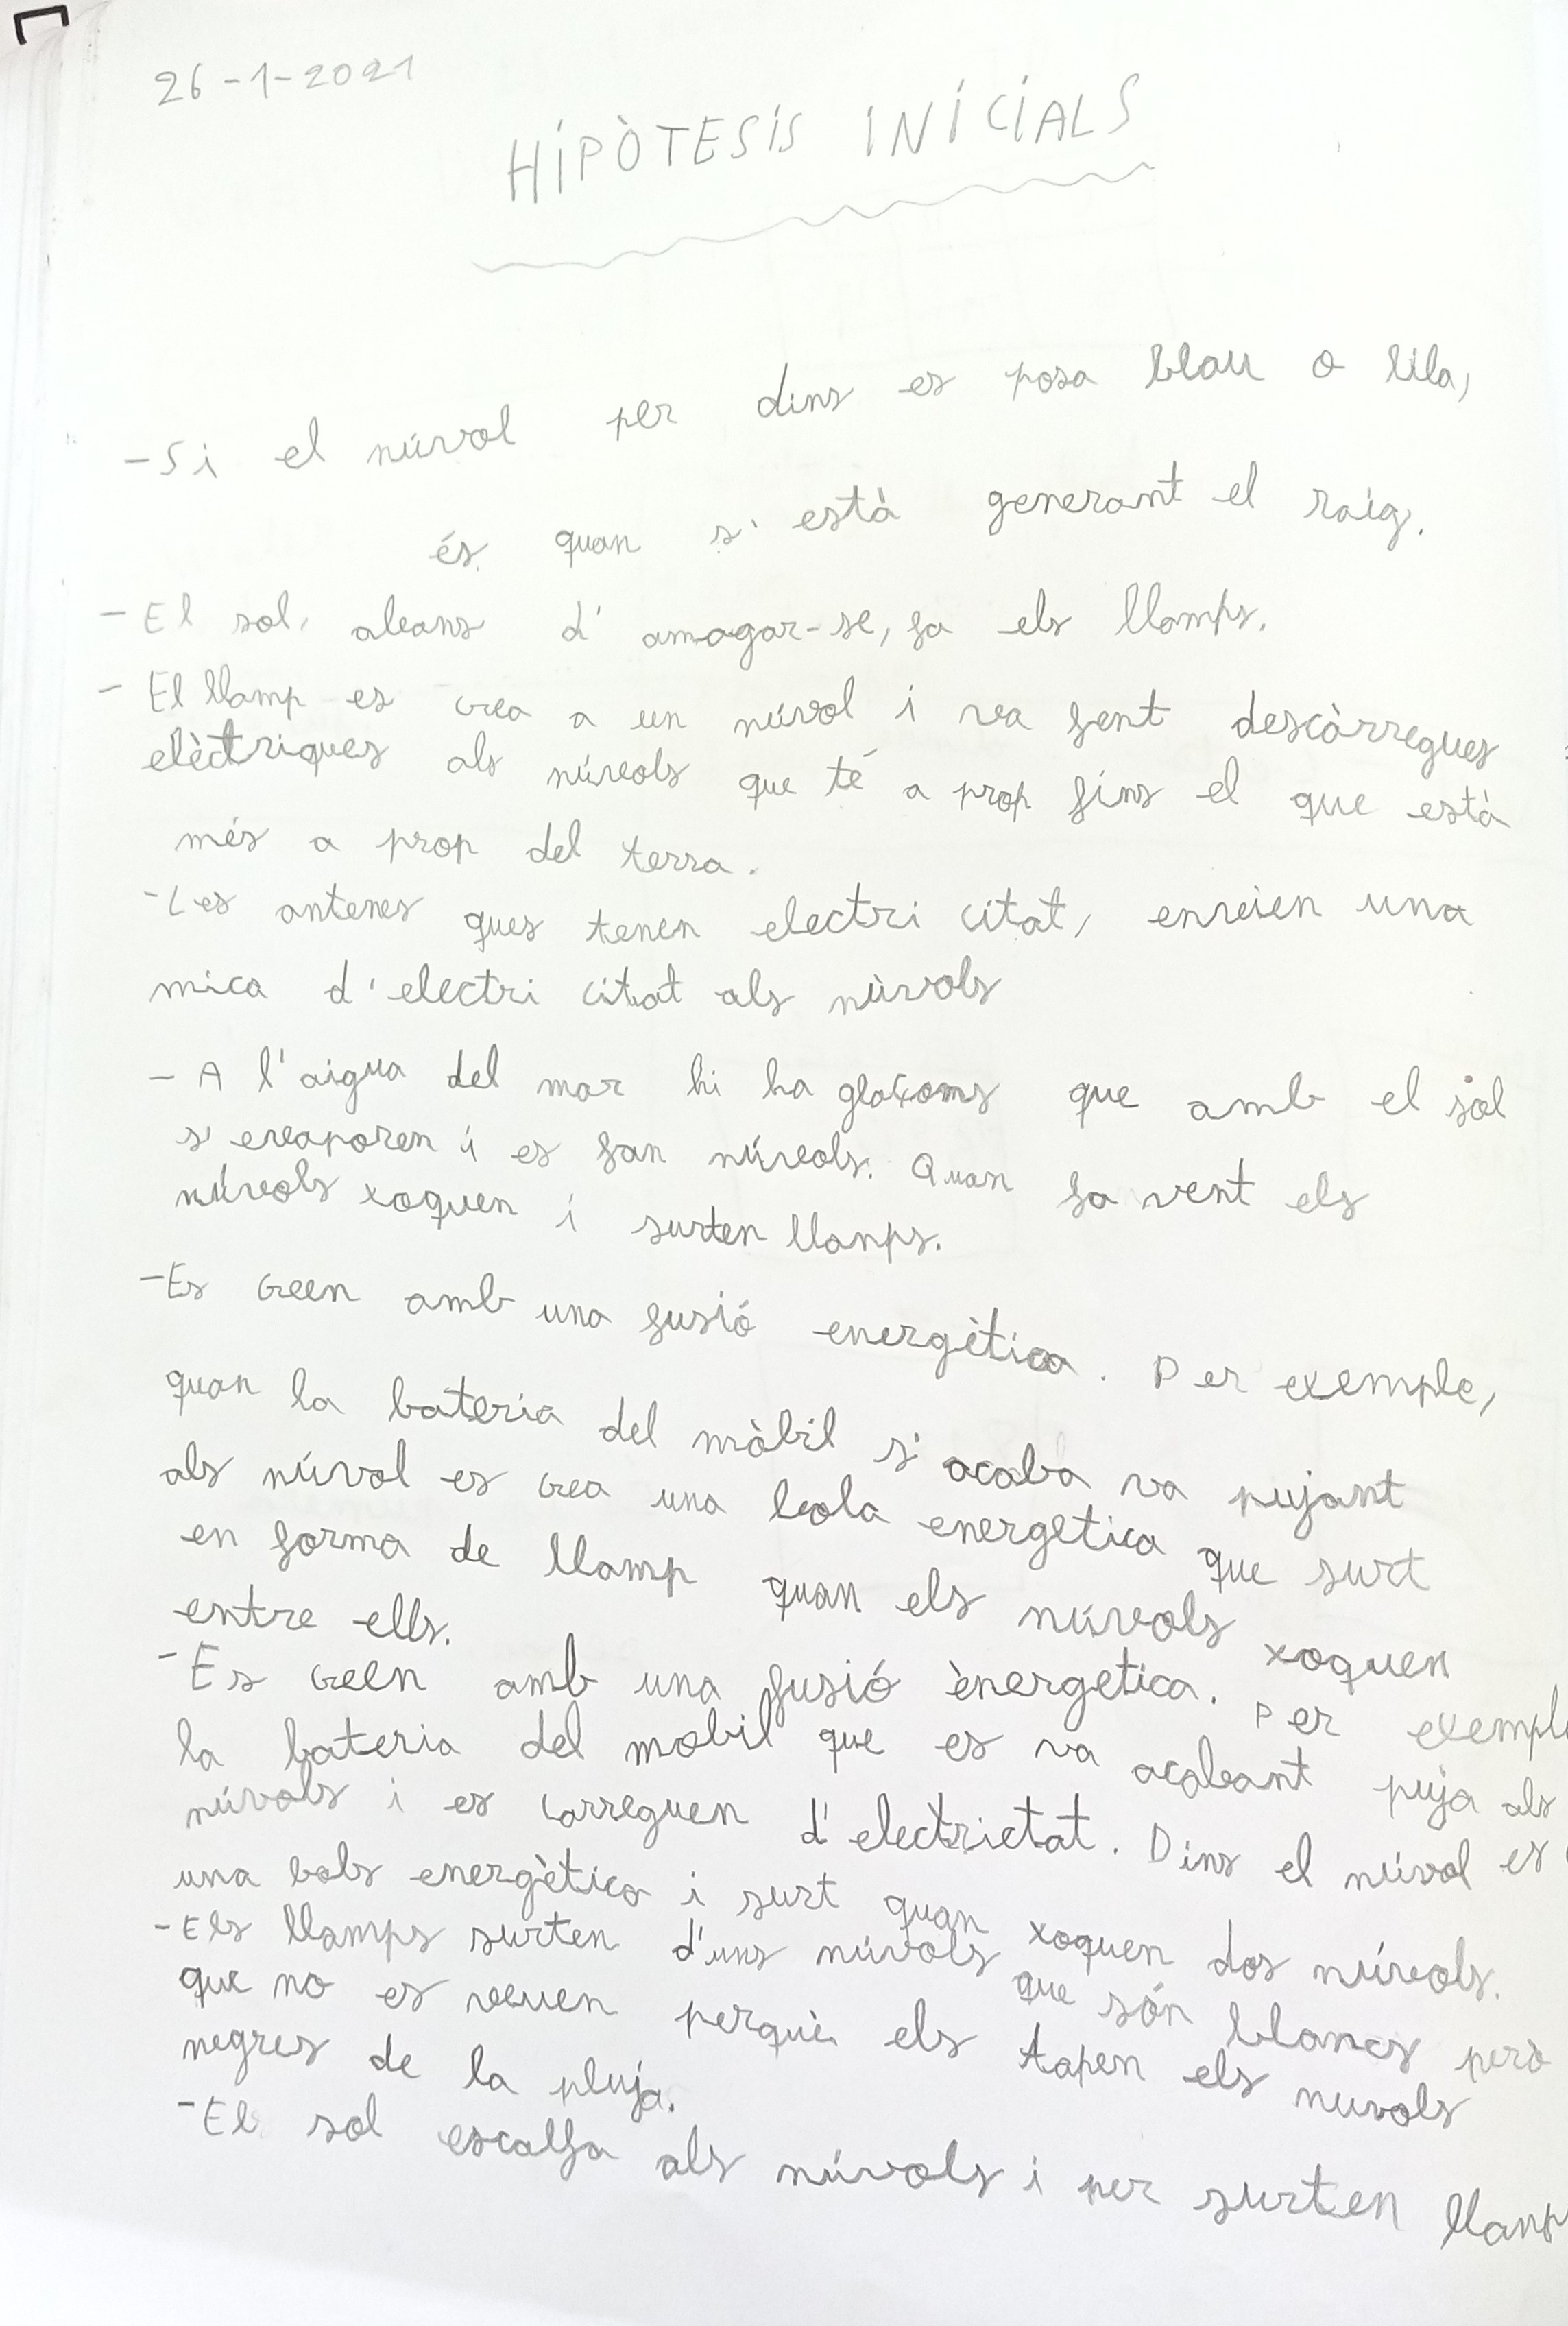 26-1-2021
HIPÒTESIS INICIALS
-Si el núvol per dins es posa blau o lila,
és quan s'està generant el raig.
-El sol, abans d'amagar-se, fa els llamps.
-El llamp es crea a un núvol i va fent descàrregues
elèctriques als núvols que té a prop fins el que està
més a prop del terra.
-Les antenes ques tenen electri citat, envien una
mica d'electri citat als núvols
-A l'aigua del mar hi ha glaçons que amb el sol
s'evaporen i es fan núvols. Quan fa vent els
núvols xoquen i surten llamps.
-Es creen amb una fusió energètica. Per exemple,
quan la bateria del mòbil s'acaba va pujant
als núvol es crea una bola energetica que surt
en forma de llamp quan els núvols xoquen
entre ells.
-Es creen amb una fusió ènergetica. Per exempl
la bateria del mobil que es va acabant puja als
núvols i es carreguen d'electrictat. Dins el núvol es
una bola energètica i surt quan xoquen dos núvols.
-Els llamps surten d'uns núvols que són blancs però
que no es veuen perquè els tapen els nuvols
negres de la pluja.
-El sol escalfa als núvols i per surten llamp